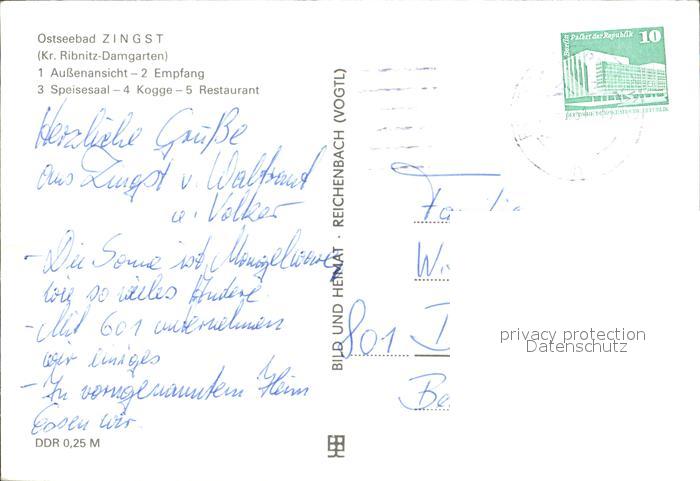 Ostseebad ZINGST
(Kr. Ribnitz-Damgarten)
1 Außenansicht – 2 Empfang
3 Speisesaal – 4 Kogge – 5 Restaurant
Herzliche Grüße
aus Zingst v. Waltraut
u. Volker
- Die Sonne ist Mangelware
wie so vieles Andere.
- Mit 601 unternehmen
wir einiges
- In vorngenanntem Heim
Essen wir.
DDR 0,25 M
BILD UND HEIMAT · REICHENBACH (VOGTL)
Berlin Palast der Republik 10
DEUTSCHE DEMOKRATISCHE REPUBLIK
801
privacy protection
Datenschutz